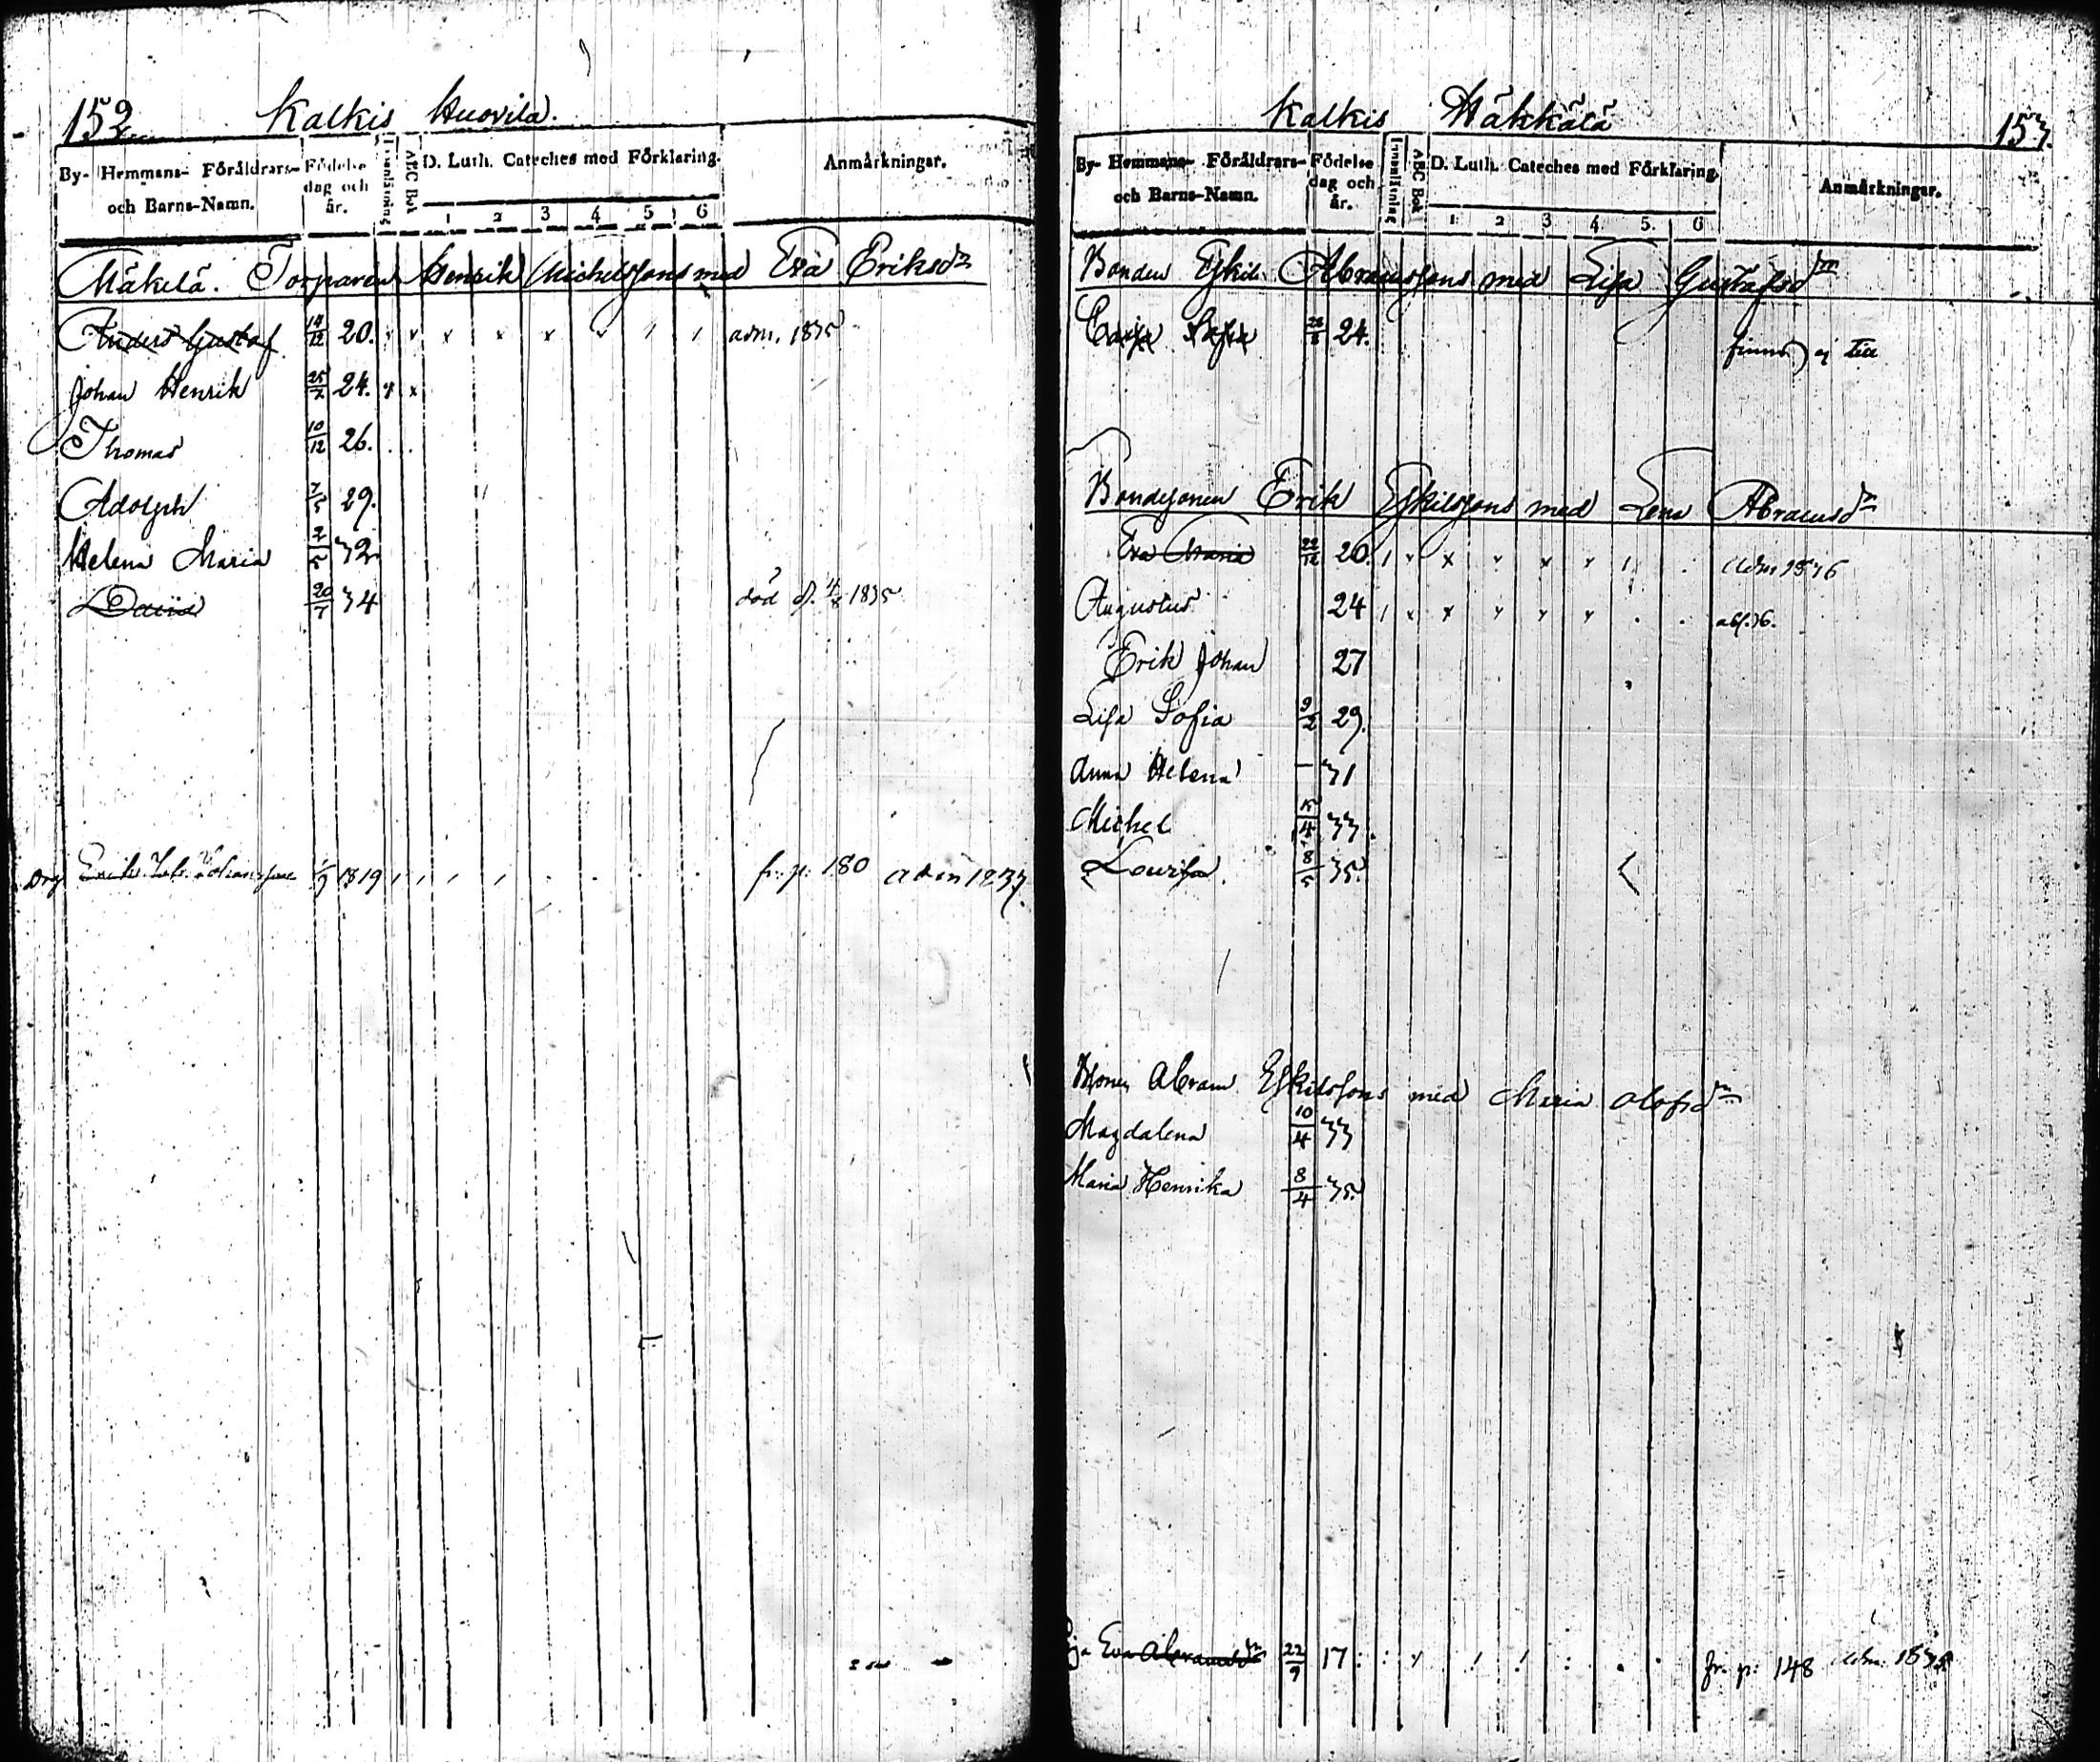 152 Kalkis Huovila.
By- Hemmans- Föräldrars- och Barns-Namn. Födelse dag och år. Innanläsning ABC Bok D. Luth. Cateches med Förklaring. 1 2 3 4 5 6 Anmärkningar.
Mäkelä. Torparen Henrik Michelssons med Eva Eriksdr
Anders Gustaf 14/12 20. adm. 1835
Johan Henrik 25/7 24.
Thomas 10/12 26.
Adolph 7/5 29.
Helena Maria 2/5 32
David 20/7 34 död d. 4/8 1835
Drg Erik Johansson 1/9 1819 fr. p. 180 adm 1837
Kalkis Häkkälä 153.
By- Hemmans- Föräldrars- och Barns-Namn. Födelse dag och år. Innanläsning ABC Bok D. Luth. Cateches med Förklaring. 1. 2 3 4. 5. 6 Anmärkningar.
Bonden Eskil Abramssons med Lisa Gustafsdr
Caisa Sofia 24. finnes ej till
Bondesonen Erik Eskilssons med Lena Abramsdr
Eva Maria 22/12 20. adm 1836
Augustus 24 abs. 36.
Erik Johan 27
Lisa Sofia 9/2 29.
Anna Helena — 31
Michel 15/4 33.
Lovisa. 8/5 35.
Abram Eskilssons med Maria Olofsdr
Magdalena 10/4 33
Maria Henrika 8/4 35.
Pja Eva Abramsdr 22/9 17 fr. p: 148 adm. 1838